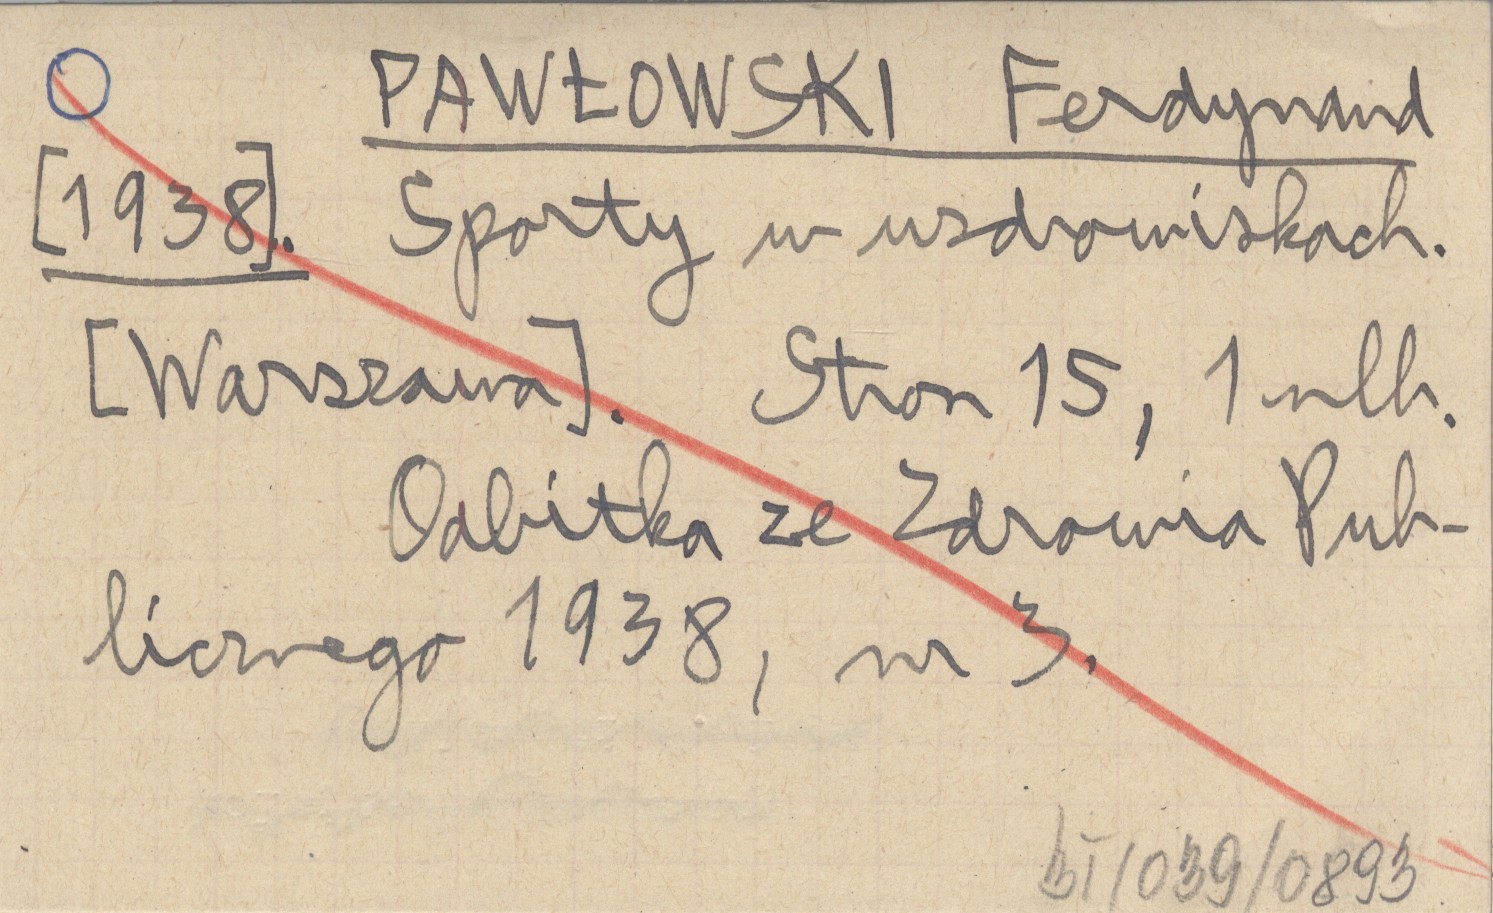 PAWŁOWSKI Ferdynand
[1938]. Sporty w uzdrowiskach.
[Warszawa]. Stron 15, 1 nlb.
Odbitka ze Zdrowia Pub-
licznego 1938, nr 3.
/039/0893